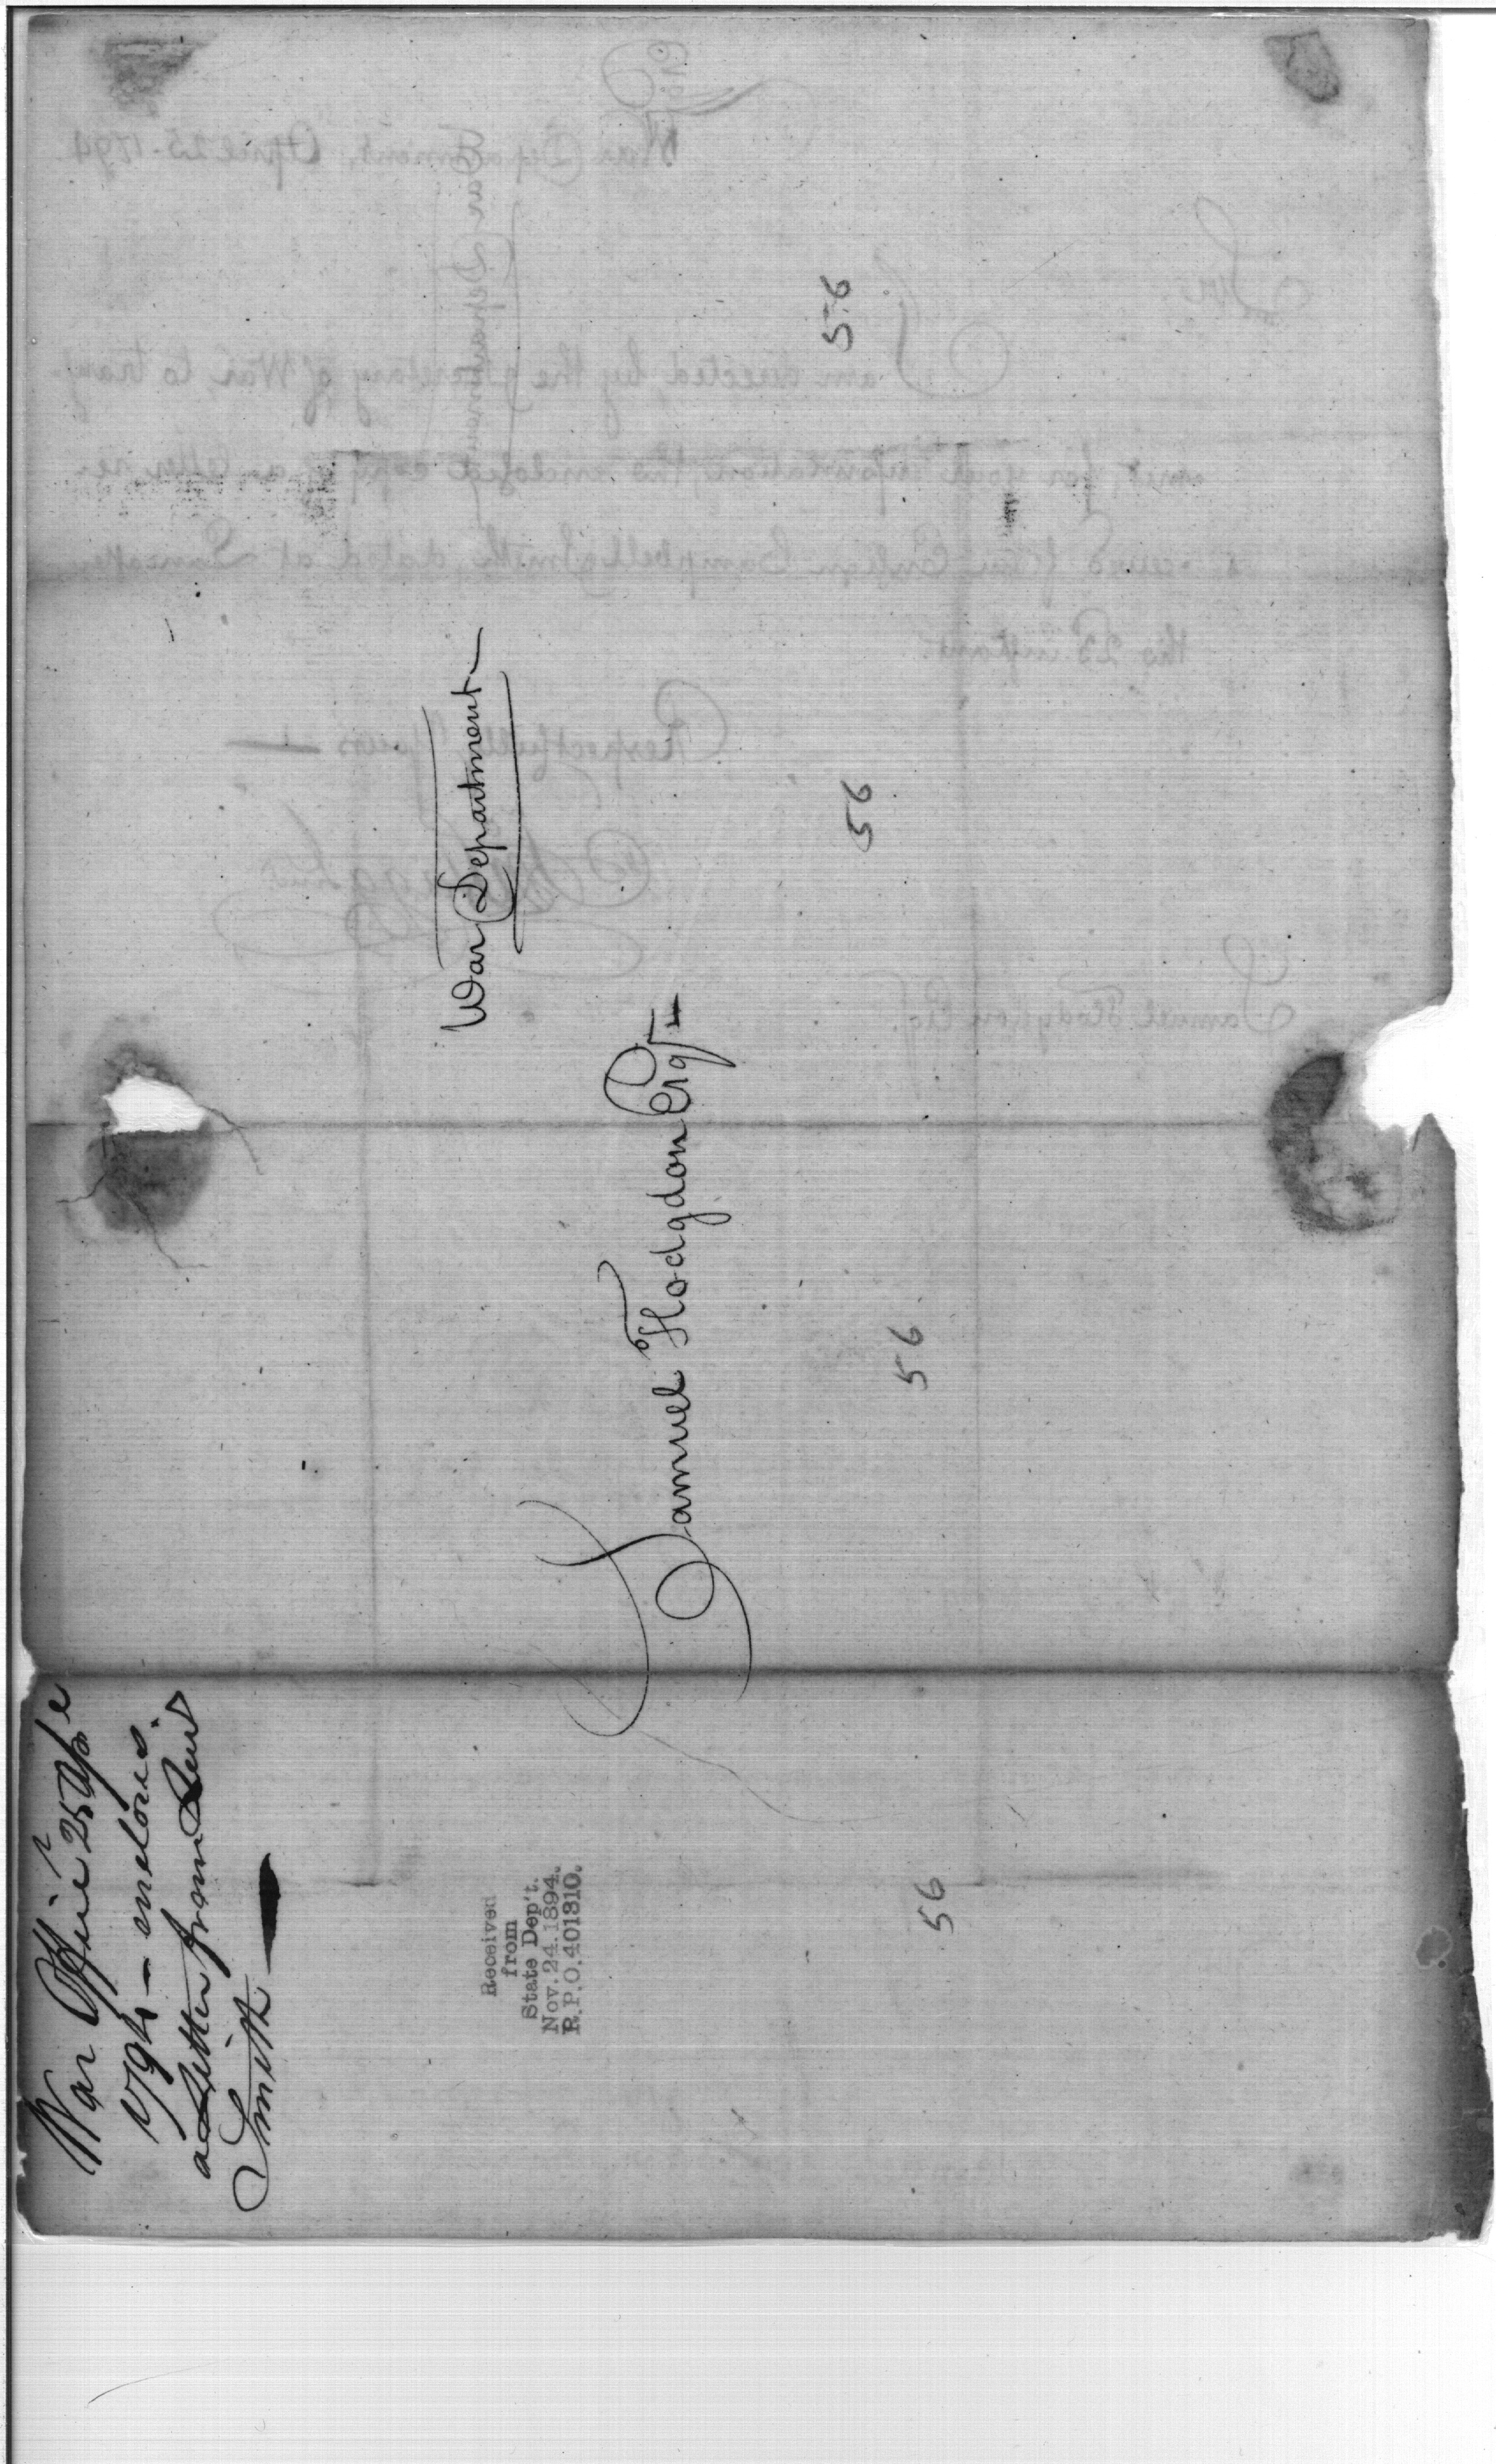 War Department
Samuel Hodgdon Esqr
War Office 25 Apr
1794 – encloses
a Letter from
Smith
Received
from
State Dep't.
Nov. 24. 1894.
R.P.O. 401310.
56
56
56
56
War Department, April 25. 1794
Sir
I am directed by the Secretary of War, to trans-
mit, for your information, the enclosed copy of a letter re-
ceived from Ensign Campbell Smith, dated at Lancaster
the 23 instant.
Respectfully Yours
Samuel Hodgdon Esq.